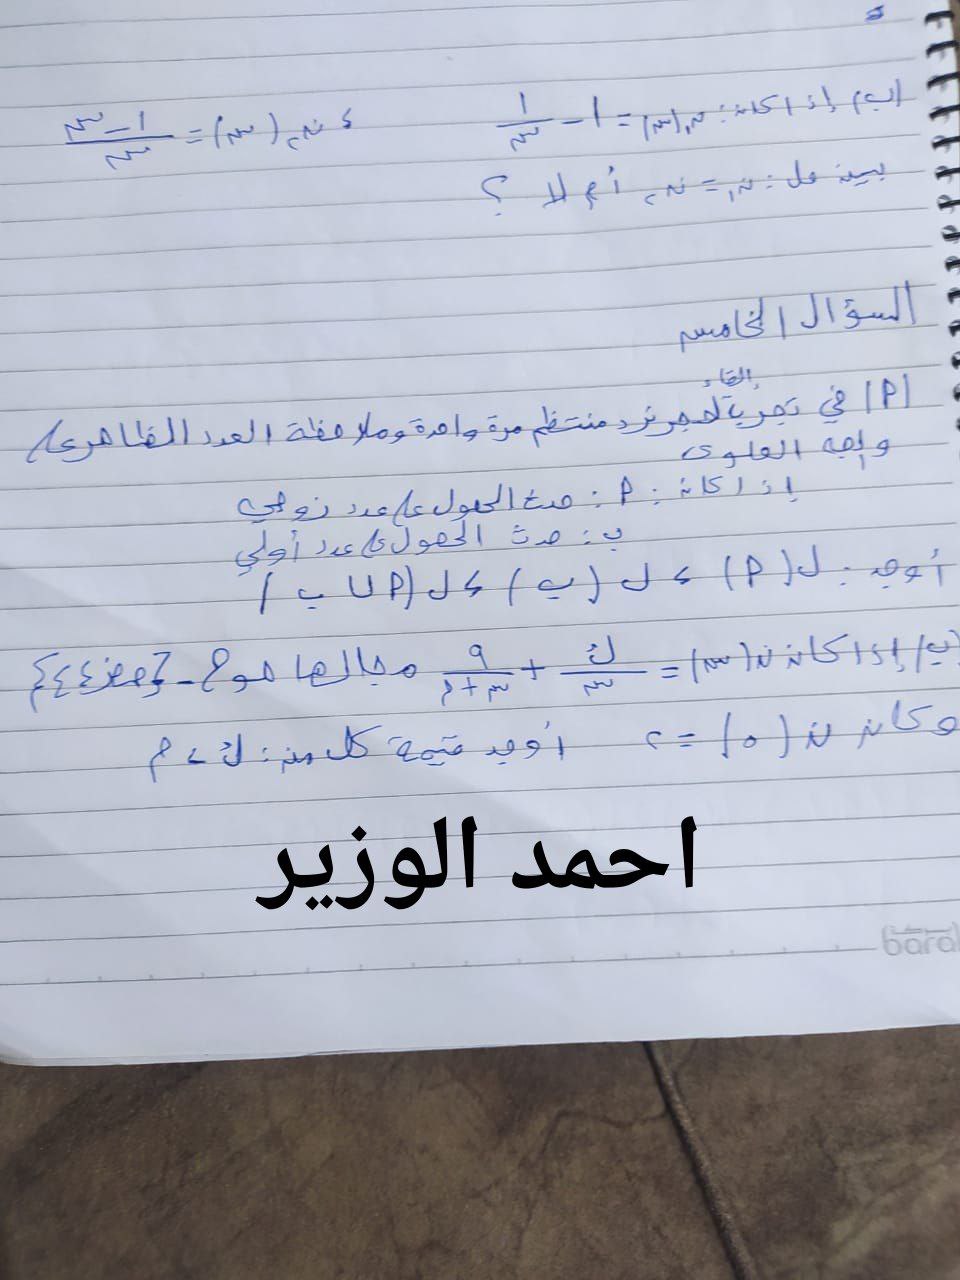 (ب) إذا كانت: ن١(س) = ١ - ١/س ، ن٢(س) = (١ - س)/س
بين هل: ن١ = ن٢ أم لا ؟
السؤال الخامس
(أ) في تجربة إلقاء حجر نرد منتظم مرة واحدة وملاحظة العدد الظاهر على
واجه العلوى
إذا كان: أ: حدث الحصول على عدد زوجي
ب: حدث الحصول على عدد أولي
أوجد: ل(أ) ، ل(ب) ، ل(أ ∪ ب)
(ب) إذا كان ن(س) = ك/س + ٩/(س+م) مجالها هو ح - {صفر، ٤}
وكان ن(٥) = ٢ أوجد قيمة كل من: ك ، م
احمد الوزير